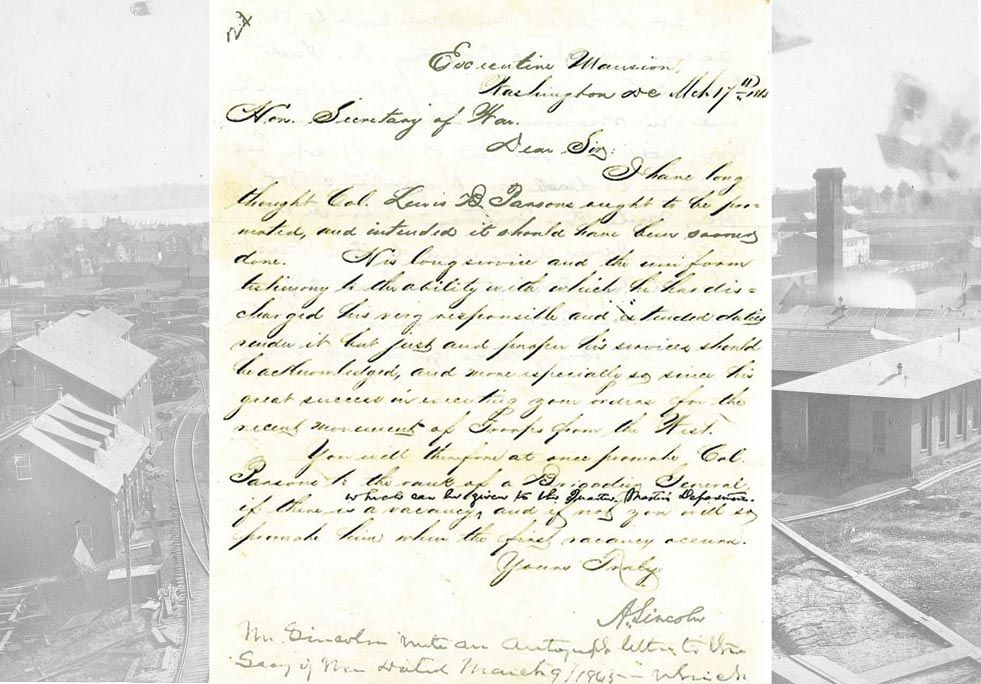 Executive Mansion,
Washington DC Mch 17th 1865
Hon. Secretary of War.
Dear Sir:
I have long
thought Col. Lewis B Parsons ought to be pro=
moted, and intended it should have been sooner
done. His long service and the uniform
testimony to the ability with which he has dis=
charged his very responsible and extended duties
render it but just and proper his services should
be acknowledged, and more especially so since his
great success in executing your orders for the
recent movement of Troops from the West.
You will therefore at once promote Col.
Parsons to the rank of a Brigadier General,
which can be given to the Quarter Master's Department.
if there is a vacancy, and if not you will so
promote him when the first vacancy occurs.
Yours Truly
A. Lincoln
Mr. Lincoln wrote an Autograph letter to the
Secy of War dated March 9/1865 — which